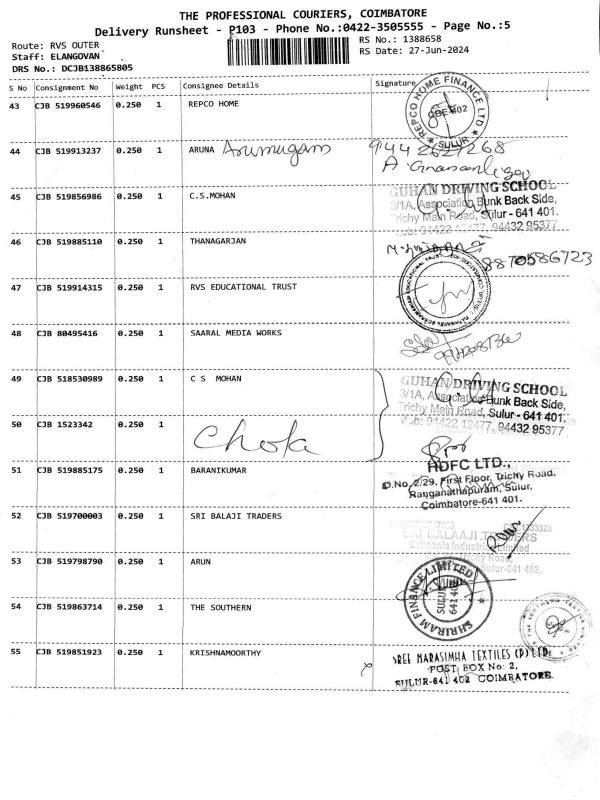 THE PROFESSIONAL COURIERS, COIMBATORE
Delivery Runsheet - P103 - Phone No.:0422-3505555 - Page No.:5
Route: RVS OUTER
RS No.: 1388658
Staff: ELANGOVAN
RS Date: 27-Jun-2024
DRS No.: DCJB138865805
S No Consignment No Weight PCS Consignee Details Signature
43 CJB 519960546 0.250 1 REPCO HOME
REPCO HOME FINANCE LTD
SULUR
44 CJB 519913237 0.250 1 ARUNA Arumugam
45 CJB 519856986 0.250 1 C.S.MOHAN
GUHAN DRIVING SCHOOL
3/1A, Association Bunk Back Side,
Trichy Main Road, Sulur - 641 401.
94422 12477, 94432 95377
46 CJB 519885110 0.250 1 THANAGARJAN
47 CJB 519914315 0.250 1 RVS EDUCATIONAL TRUST
48 CJB 80495416 0.250 1 SAARAL MEDIA WORKS
49 CJB 518530989 0.250 1 C S MOHAN
GUHAN DRIVING SCHOOL
3/1A, Association Bunk Back Side,
Trichy Main Road, Sulur - 641 401.
94422 12477, 94432 95377
50 CJB 1523342 0.250 1
51 CJB 519885175 0.250 1 BARANIKUMAR
HDFC LTD.,
D.No. 2/29, First Floor, Trichy Road,
Ranganathapuram, Sulur,
Coimbatore-641 401.
52 CJB 519700003 0.250 1 SRI BALAJI TRADERS
SRI BALAAJI TRADERS
53 CJB 519798790 0.250 1 ARUN
SHRIRAM FINANCE LIMITED
SULUR
54 CJB 519863714 0.250 1 THE SOUTHERN
55 CJB 519851923 0.250 1 KRISHNAMOORTHY
SREE NARASIMHA TEXTILES (P) LTD
POST BOX No: 2,
SULUR-641 402 COIMBATORE